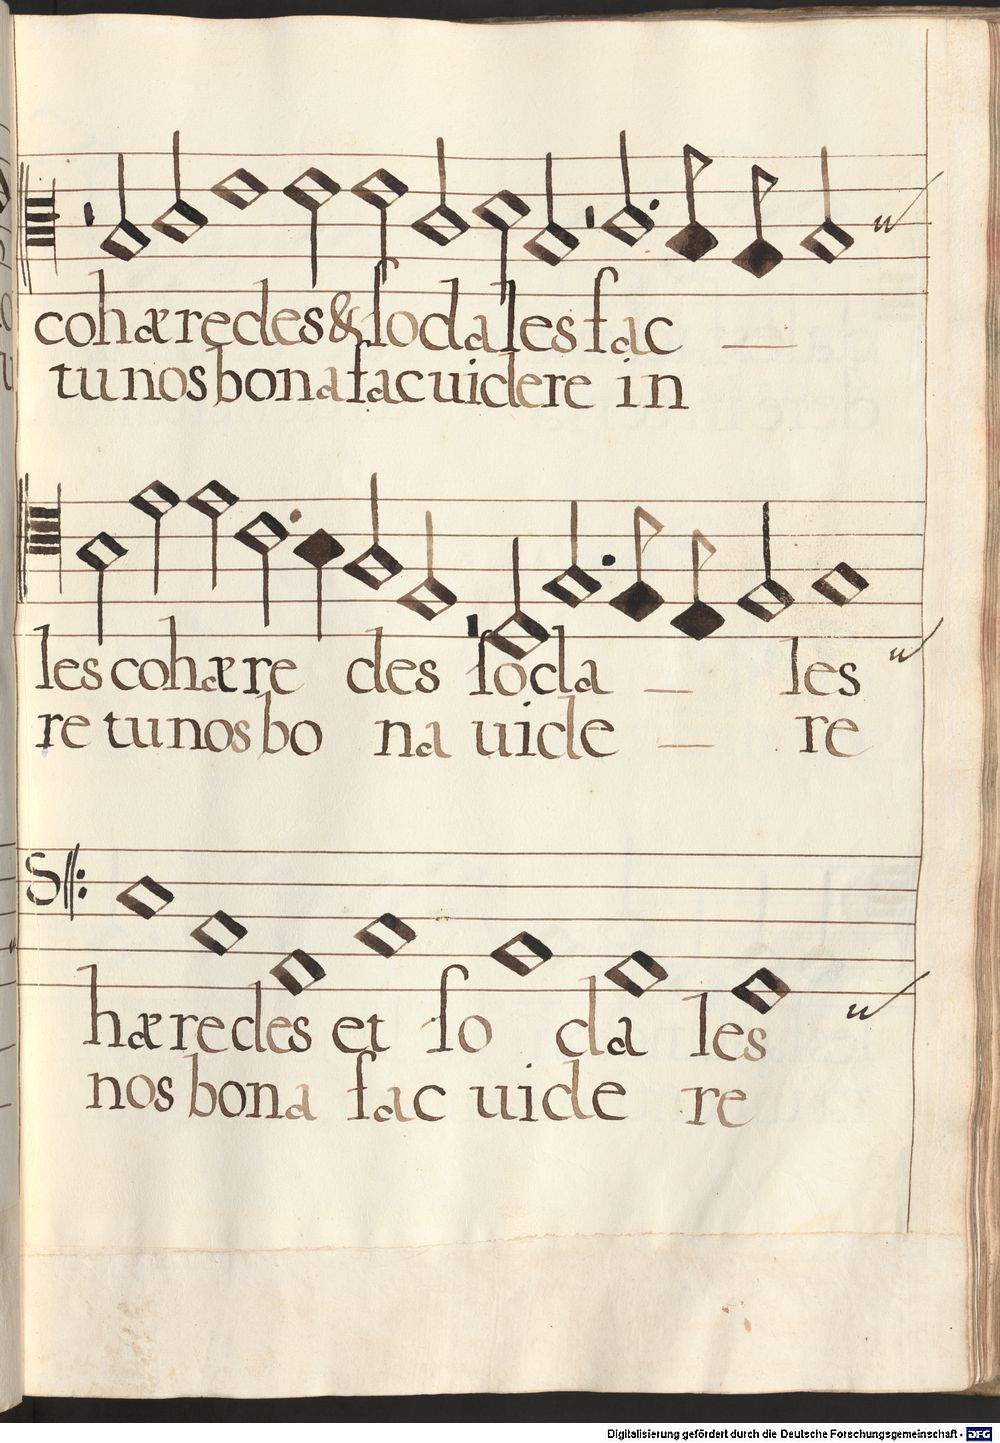 cohæredes & sodales fac
tu nos bona fac uidere in
les cohære des soda les
re tu nos bo na uide re
hæredes et so da les
nos bona fac uide re
Digitalisierung gefördert durch die Deutsche Forschungsgemeinschaft - DFG